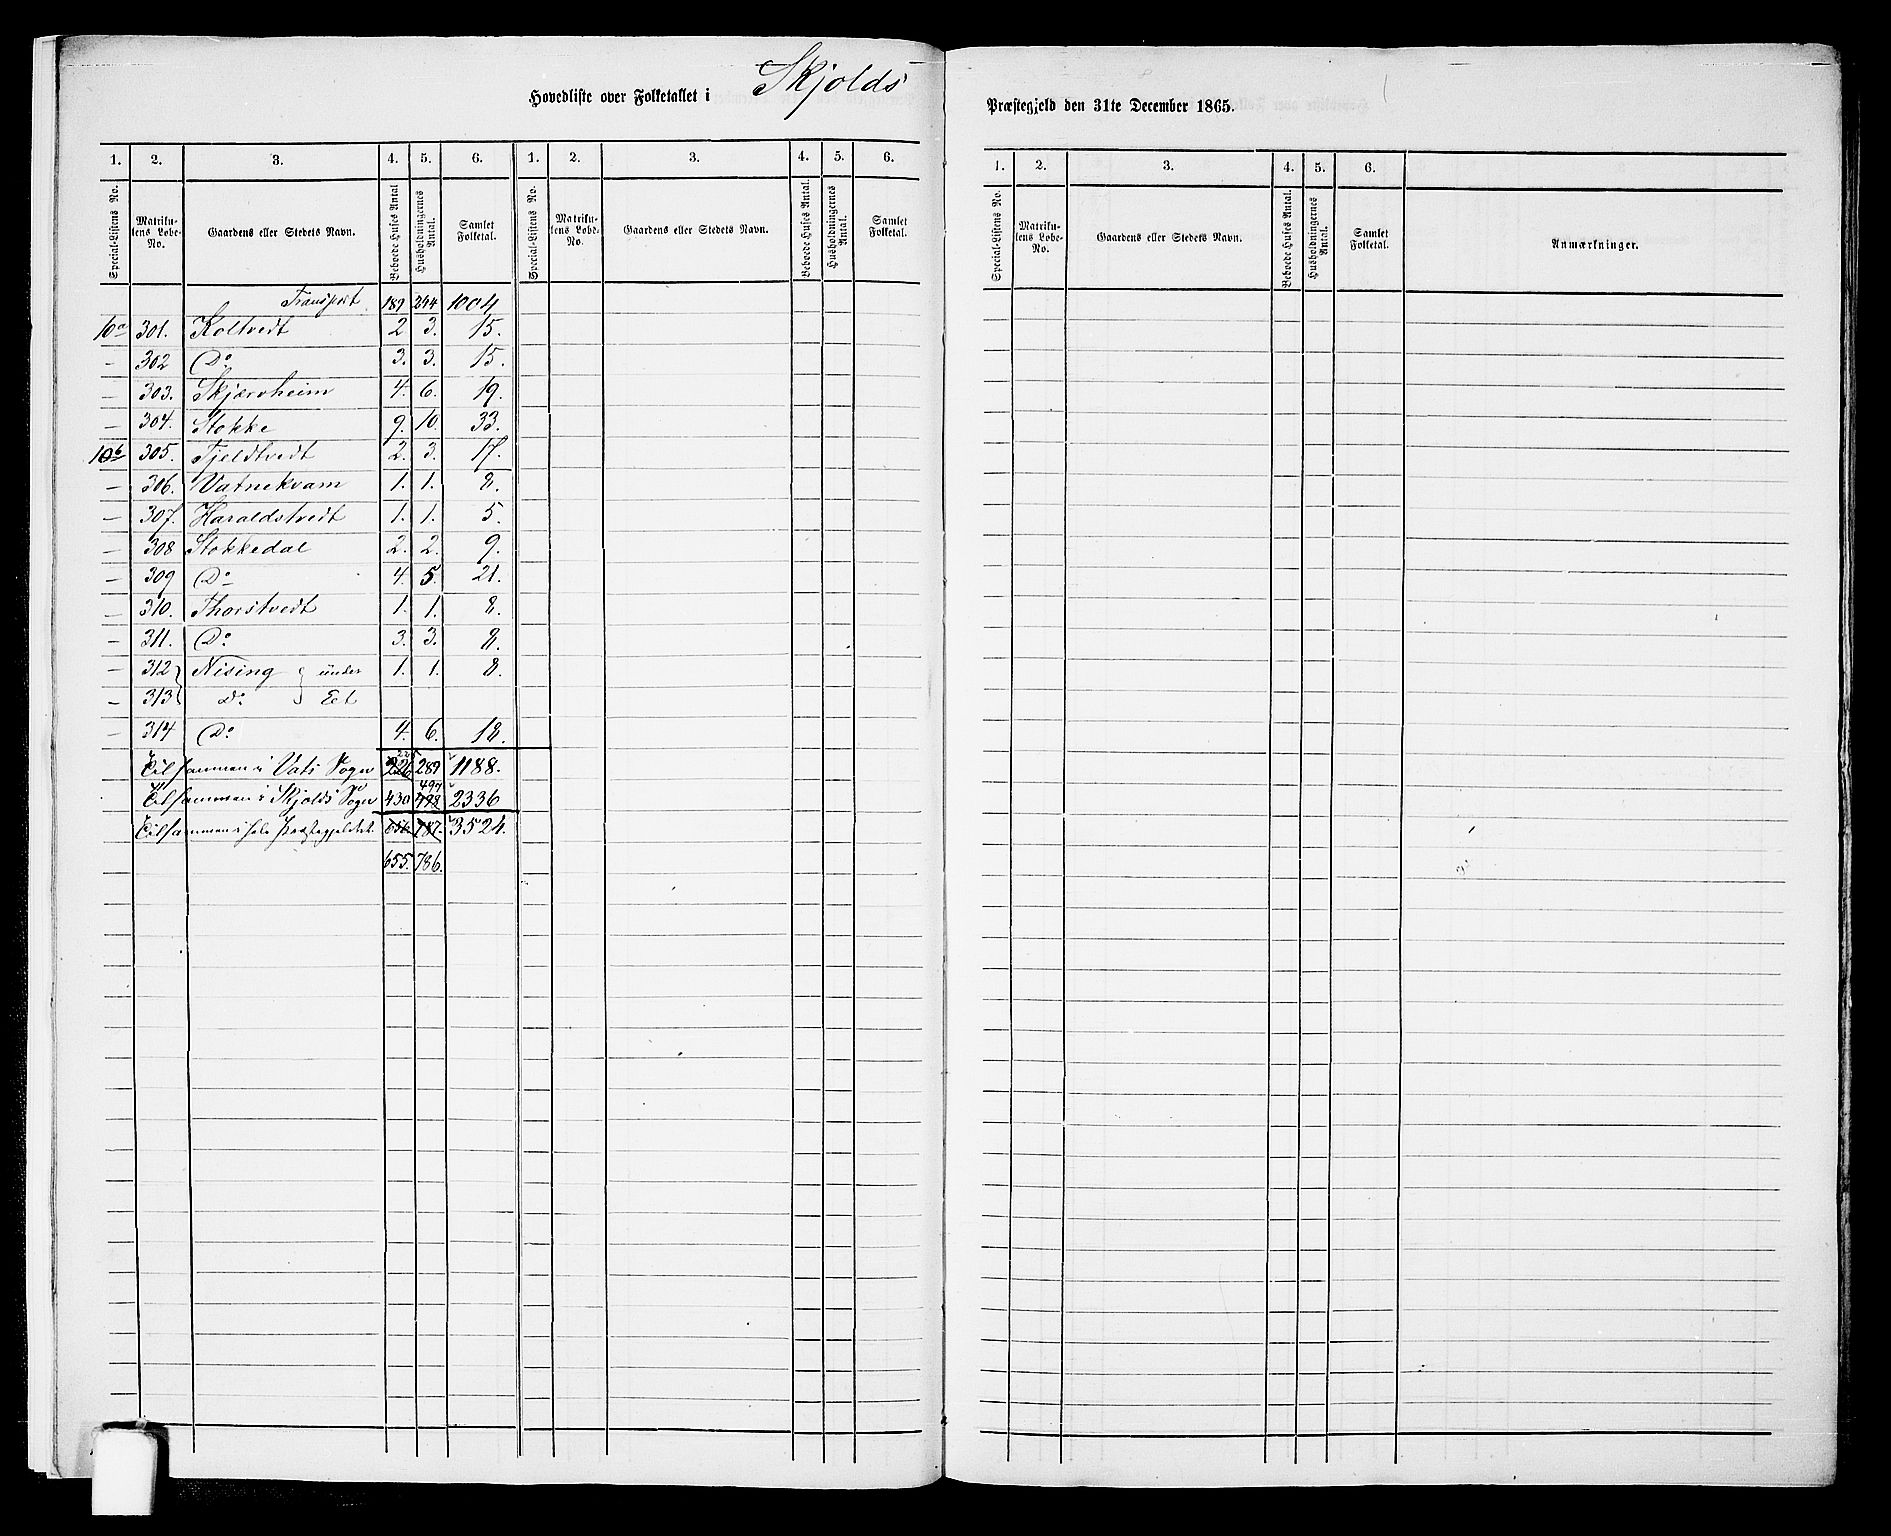 Hovedliste over Folketallet i Skjolds Præstegjeld den 31te December 1865.
1. 2. 3. 4. 5. 6. 1. 2. 3. 4. 5. 6.
Special-Listens No. Matrikulens Løbe-No. Gaardens eller Stedets Navn. Beboede Huses Antal Husholdningernes Antal. Samlet Folketal. Special-Listens No. Matrikulens Løbe-No. Gaardens eller Stedets Navn. Beboede Huses Antal. Husholdningernes Antal. Samlet Folketal.
Transport 189 244 1004
10a 301. Koltvedt 2 3. 15.
— 302 Do 3. 3. 15.
— 303. Skjærvheim 4. 6. 19.
— 304. Stokke 9. 10. 33.
10b 305. Fjeldtvedt 2. 3. 17.
— 306. Vatnekvam 1. 1. 8.
— 307. Haraldstvedt 1. 1. 5.
— 308 Stokkedal 2. 2. 9.
— 309 Do 4. 5. 21.
— 310. Thorstvedt 1. 1. 8.
— 311. Do 3. 3. 8.
— 312 Nising under 1. 1. 8.
— 313 do Eet
— 314 Do 4. 6. 18.
Tilsammen i Vats Sogn 226 225 289 1188.
Tilsammen i Skjolds Sogn 430 498 497 2336
Tilsammen i hele Præstegjeldet. 656. 787. 3524.
655. 786.
1. 2. 3. 4. 5. 6.
Special-Listens No. Matrikulens Løbe-No. Gaardens eller Stedets Navn. Beboede Huses Antal. Husholdningernes Antal. Samlet Folketal. Anmærkninger.